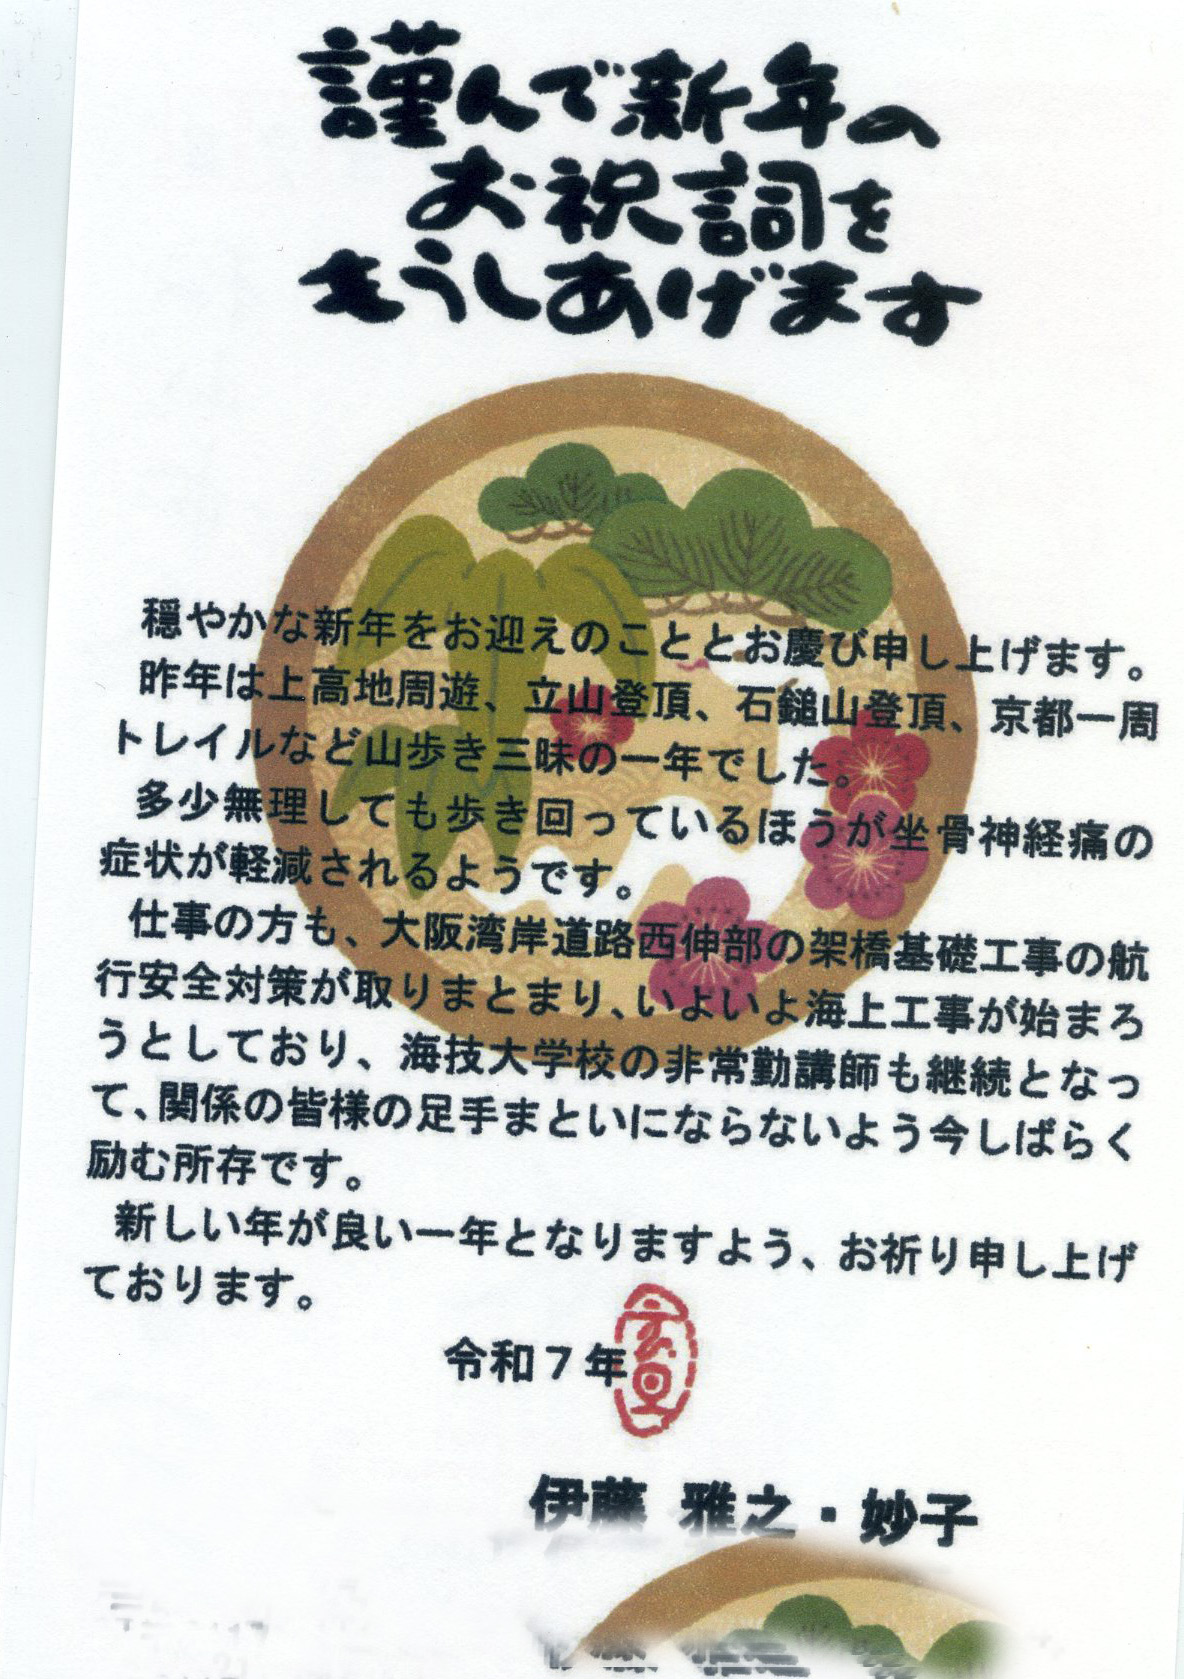 謹んで新年の
お祝詞を
もうしあげます
穏やかな新年をお迎えのこととお慶び申し上げます。
昨年は上高地周遊、立山登頂、石鎚山登頂、京都一周
トレイルなど山歩き三昧の一年でした。
多少無理しても歩き回っているほうが坐骨神経痛の
症状が軽減されるようです。
仕事の方も、大阪湾岸道路西伸部の架橋基礎工事の航
行安全対策が取りまとまり、いよいよ海上工事が始まろ
うとしており、海技大学校の非常勤講師も継続となっ
て、関係の皆様の足手まといにならないよう今しばらく
励む所存です。
新しい年が良い一年となりますよう、お祈り申し上げ
ております。
令和７年
元旦
伊藤 雅之・妙子